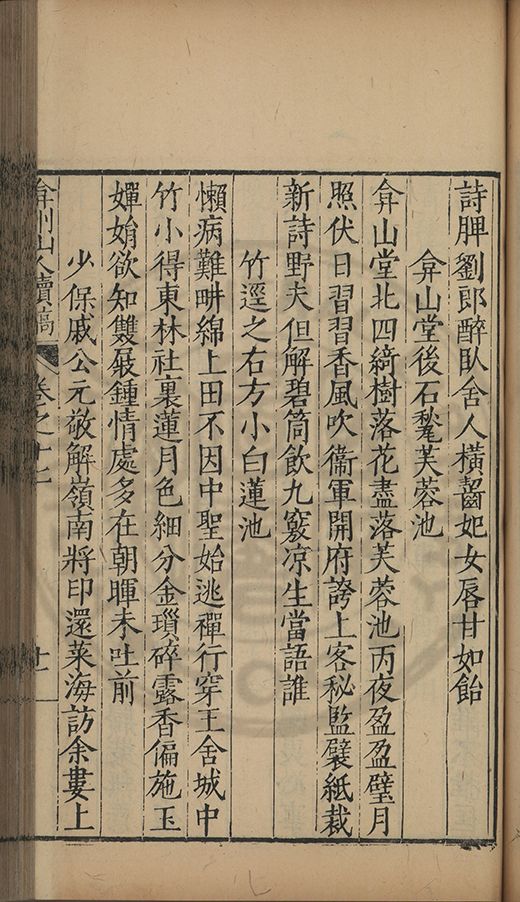 詩脾劉郎醉臥舍人橫齧妃女唇甘如飴
弇山堂後石甃芙蓉池
弇山堂北四綺樹落花盡落芙蓉池丙夜盈盈璧月
照伏日習習香風吹衞軍開府誇上客秘監襞紙裁
新詩野夫但解碧筒飲九竅凉生當語誰
竹逕之右方小白蓮池
懶病難畊綿上田不因中聖始逃禪行穿王舍城中
竹小得東林社裏蓮月色細分金瑣碎露香偏施玉
嬋娟欲知雙屐鍾情處多在朝暉未吐前
少保戚公元敬解嶺南將印還萊海訪余婁上
弇州山人續稿 卷之十七 廿一